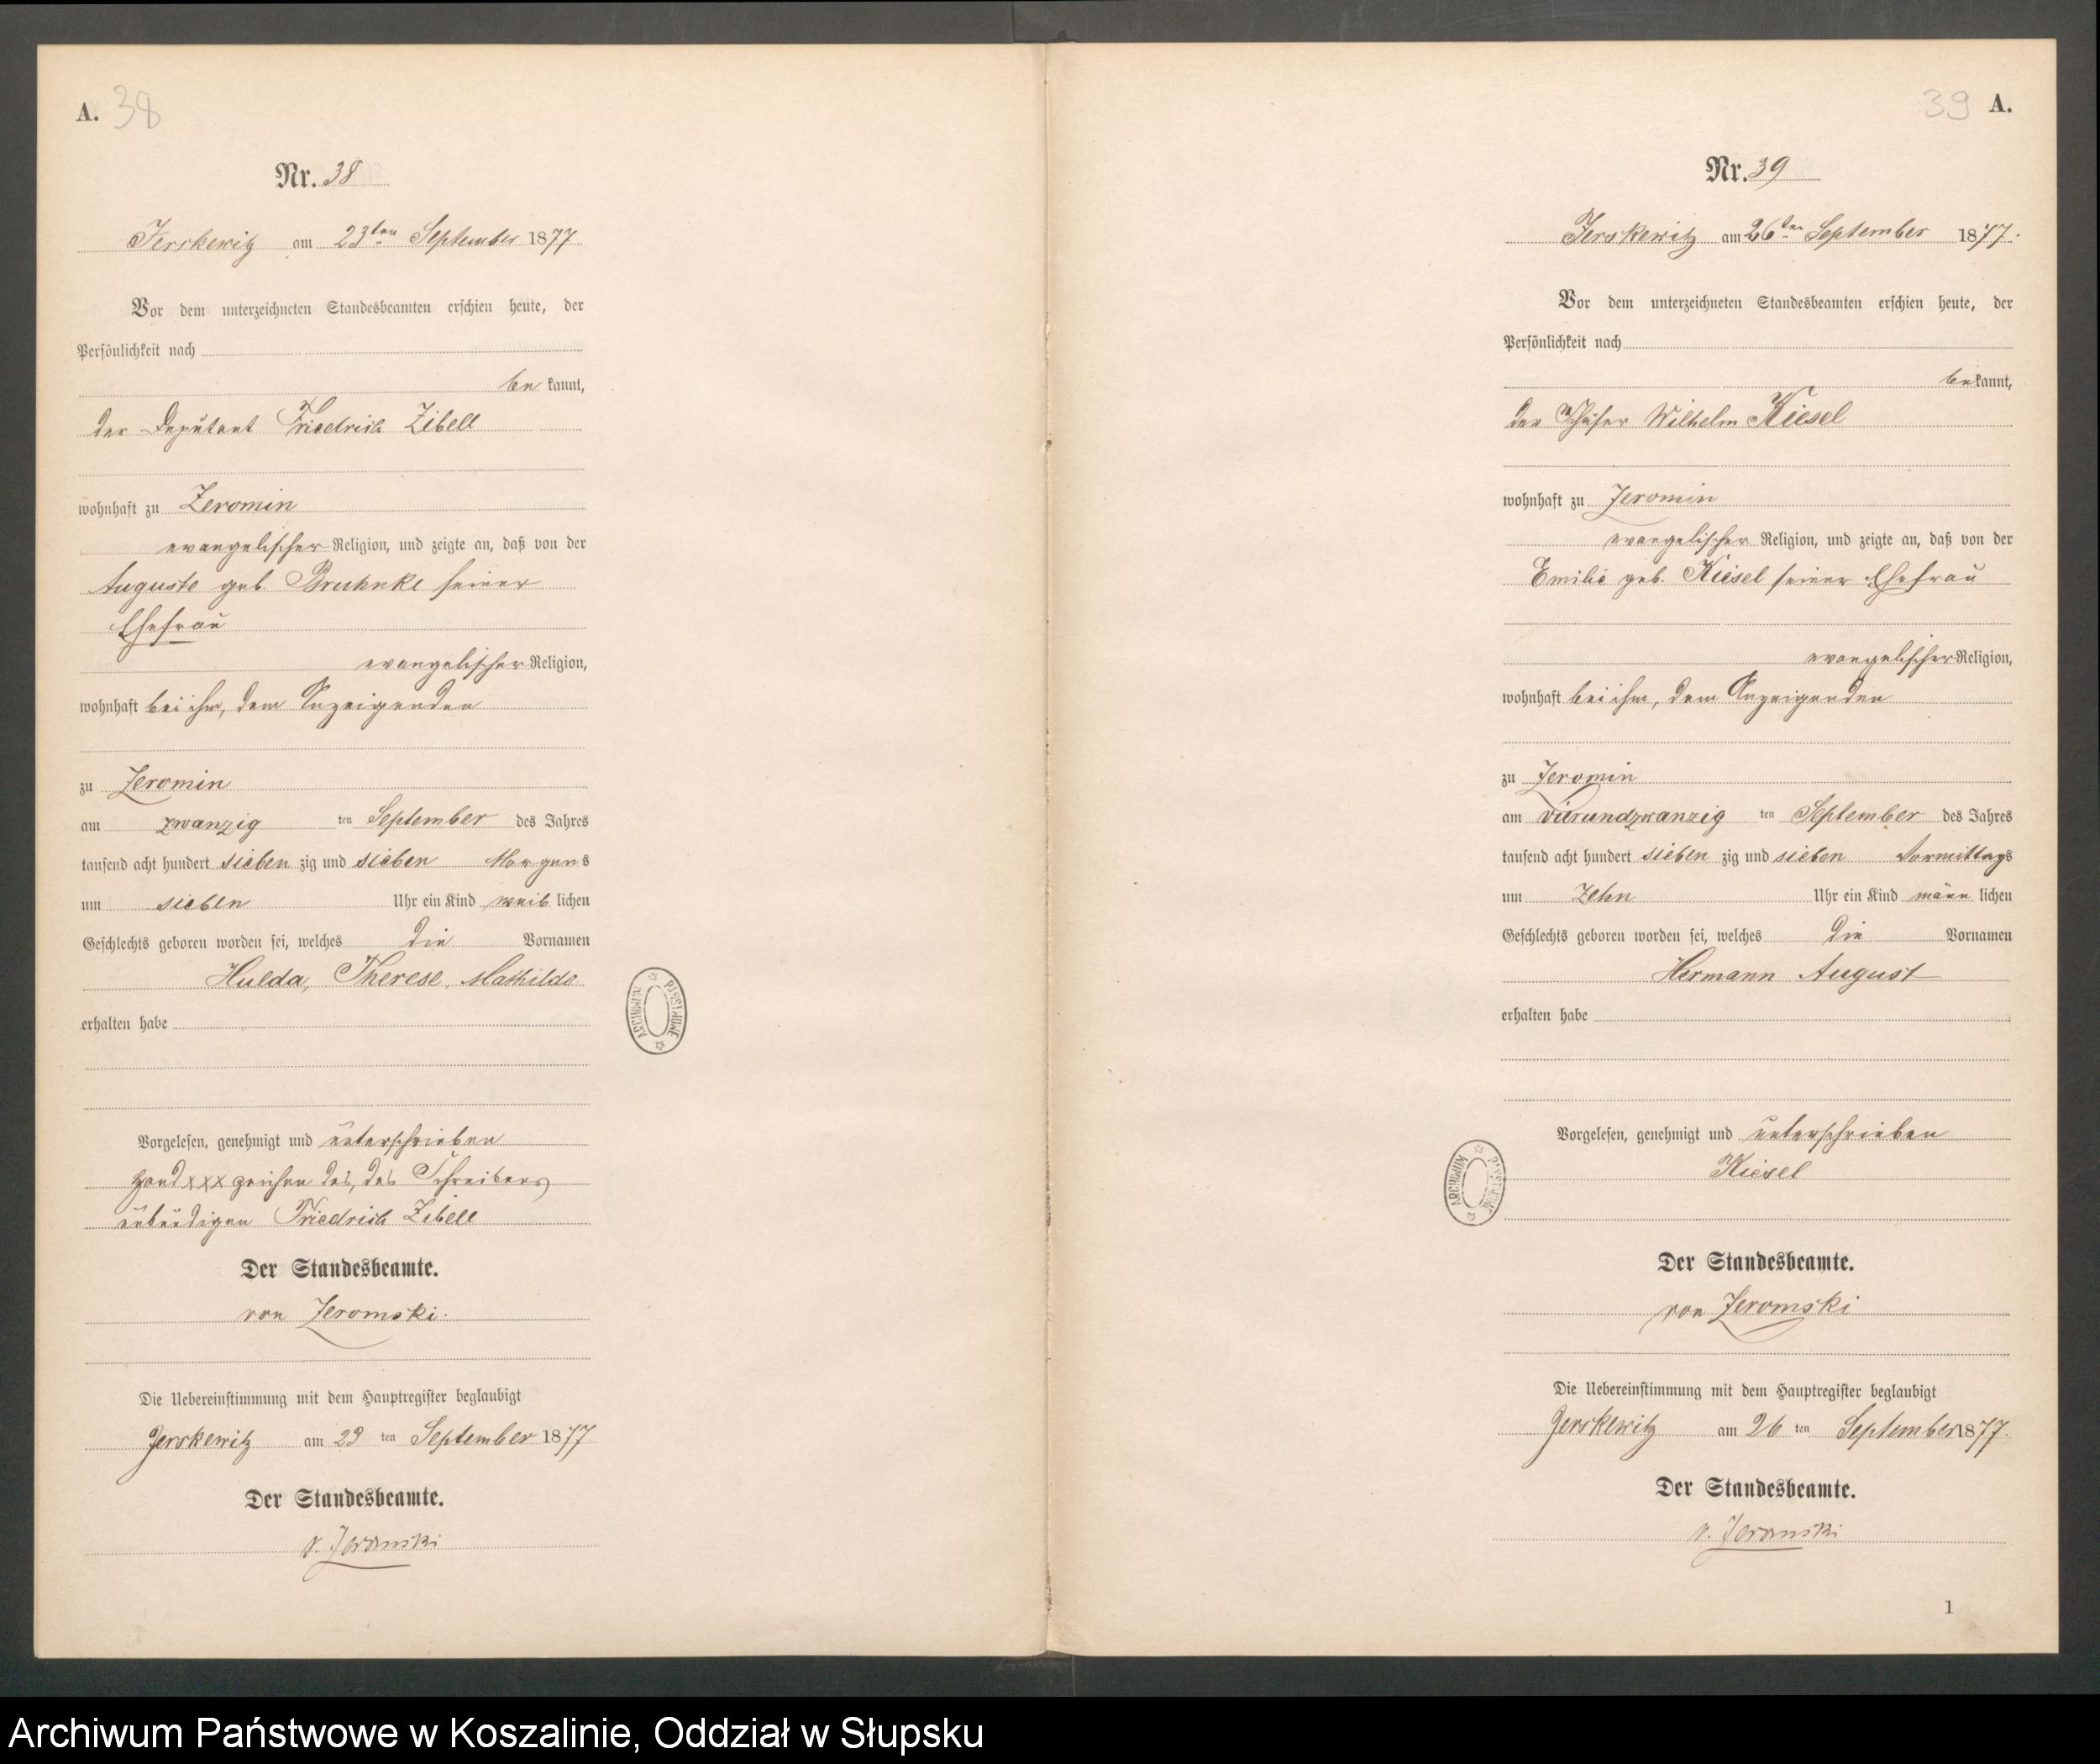 A. 38
Nr. 38
Jerskewitz am 23ten September 1877
Vor dem unterzeichneten Standesbeamten erschien heute, der
Persönlichkeit nach
be kannt,
der Deputant Friedrich Zibell
wohnhaft zu Zeromin
evangelischer Religion, und zeigte an, daß von der
Auguste geb. Bruhnke seiner
Ehefrau
evangelischer Religion,
wohnhaft bei ihm, dem Anzeigenden
zu Zeromin
am zwanzig ten September des Jahres
tausend acht hundert sieben zig und sieben Morgens
um sieben Uhr ein Kind weib lichen
Geschlechts geboren worden sei, welches die Vornamen
Hulda, Therese, Mathilde
erhalten habe
Vorgelesen, genehmigt und unterschrieben
Hand xxx zeichen des, des Schreibens
unkundigen Friedrich Zibell
Der Standesbeamte.
von Zeromski.
Die Uebereinstimmung mit dem Hauptregister beglaubigt
Jerskewitz am 23 ten September 1877
Der Standesbeamte.
v. Zeromski
ARCHIWUM PAŃSTWOWE
39 A.
Nr. 39
Jerskewitz am 26ten September 1877.
Vor dem unterzeichneten Standesbeamten erschien heute, der
Persönlichkeit nach
be kannt,
der Schäfer Wilhelm Kiesel
wohnhaft zu Zeromin
evangelischer Religion, und zeigte an, daß von der
Emilie geb. Kiesel seiner Ehefrau
evangelischer Religion,
wohnhaft bei ihm, dem Anzeigenden
zu Zeromin
am vierundzwanzig ten September des Jahres
tausend acht hundert sieben zig und sieben Vormittags
um zehn Uhr ein Kind männ lichen
Geschlechts geboren worden sei, welches die Vornamen
Hermann August
erhalten habe
Vorgelesen, genehmigt und unterschrieben
Kiesel
Der Standesbeamte.
von Zeromski
Die Uebereinstimmung mit dem Hauptregister beglaubigt
Jerskewitz am 26 ten September 1877.
Der Standesbeamte.
v. Zeromski
1
ARCHIWUM PAŃSTWOWE
Archiwum Państwowe w Koszalinie, Oddział w Słupsku